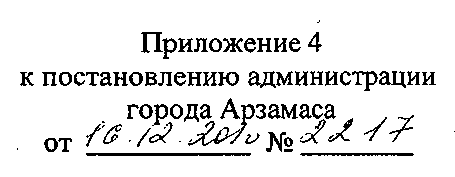 Приложение 4
к постановлению администрации
города Арзамаса
от 16.12.2010 № 2217